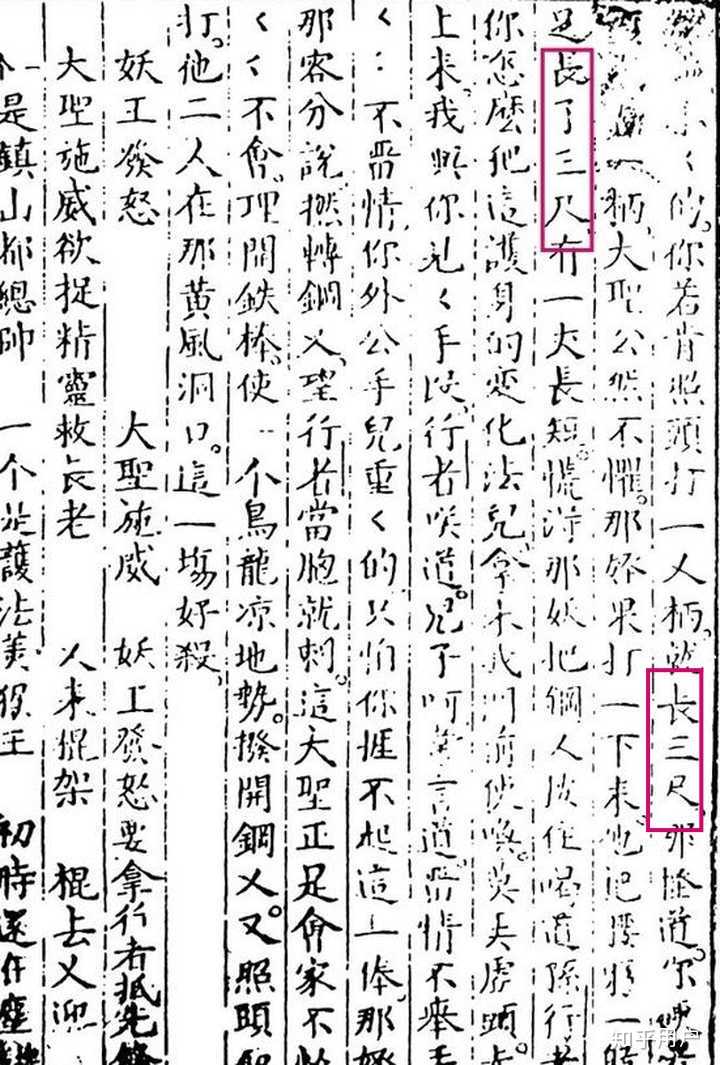 小〻的。你若肯照頭打一叉柄。就長三尺。那怪道。你
一柄。大聖公然不懼。那妖果打一下來。他把腰躬一
足長了三尺。有一丈長短。慌得那妖把鋼叉按住喝道孫行者
你怎麽把這護身的变化法兒。拿來我門前使喚。莫弄虛頭。走
上來。我與你見〻手段。行者笑道。兒子呵。常言道。畱情不舉手
〻〻不畱情。你外公手兒重〻的。只怕你捱不起這一棒。那妖
那容分說。撚轉鋼叉。望行者當胸就刺。這大聖正是會家不忙
〻〻不會。理開鉄棒。使一个烏龍凉地勢。撥開鋼叉。又照頭便
打。他二人在那黃風洞口。這一塲好殺。
妖王發怒 大聖施威 妖王發怒要拿行者抵先鋒
大聖施威欲捉精靈救長老 叉來棍架 棍去叉迎
个是鎮山都總帥 一个是護法美猴王 初時還在塵
知乎用户